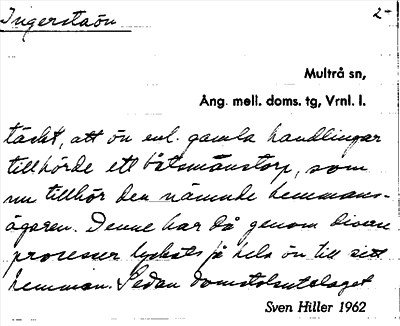 Ingerstaön
2
Multrå sn,
Ång. mell. doms. tg, Vrnl. l.
täckt, att ön enl. gamla handlingar
tillhörde ett båtsmanstorp, som
nu tillhör den nämnde hemmans-
ägaren. Denne har då genom
processer lyckats få hela ön till sitt
hemman. Sedan domstolsutslaget
Sven Hiller 1962